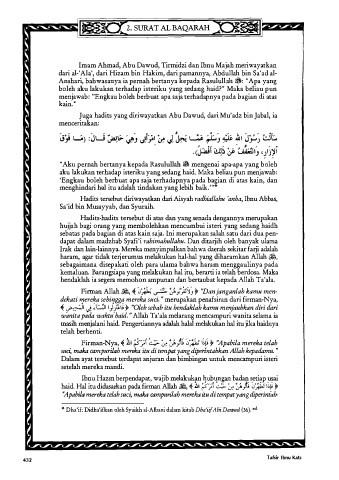 2. SURAT AL BAQARAH
Imam Ahmad, Abu Dawud, Tirmidzi dan Ibnu Majah meriwayatkan
dari al-'Ala', dari Hizam bin Hakim, dari pamannya, Abdullah bin Sa'ad al-
Anshari, bahwasanya ia pernah bertanya kepada Rasulullah ﷺ: "Apa yang
boleh aku lakukan terhadap isteriku yang sedang haid?" Maka beliau pun
menjawab: "Engkau boleh berbuat apa saja terhadapnya pada bagian di atas
kain."
Juga hadits yang diriwayatkan Abu Dawud, dari Mu'adz bin Jabal, ia
menceritakan:
سَأَلْتُ رَسُوْلَ اللهِ صَلَّى اللهُ عَلَيْهِ وَسَلَّمَ عَمَّا يَحِلُّ لِي مِنِ امْرَأَتِي وَهِيَ حَائِضٌ قَالَ: (مَا فَوْقَ
الْإِزَارِ، وَالتَّعَفُّفُ عَنْ ذَلِكَ أَفْضَلُ).
"Aku pernah bertanya kepada Rasulullah ﷺ mengenai apa-apa yang boleh
aku lakukan terhadap isteriku yang sedang haid. Maka beliau pun menjawab:
'Engkau boleh berbuat apa saja terhadapnya pada bagian di atas kain, dan
menghindari hal itu adalah tindakan yang lebih baik.'"
Hadits tersebut diriwayatkan dari Aisyah radhiallahu 'anha, Ibnu Abbas,
Sa'id bin Musayyab, dan Syuraih.
Hadits-hadits tersebut di atas dan yang senada dengannya merupakan
hujjah bagi orang yang membolehkan mencumbui isteri yang sedang haidh
sebatas pada bagian di atas kain saja. Ini merupakan salah satu dari dua pen-
dapat dalam madzhab Syafi'i rahimahullahu. Dan ditarjih oleh banyak ulama
Irak dan lain-lainnya. Mereka menyimpulkan bahwa daerah sekitar farji adalah
haram, agar tidak terjerumus melakukan hal-hal yang diharamkan Allah ﷻ,
sebagaimana disepakati oleh para ulama bahwa haram menggaulinya pada
kemaluan. Barangsiapa yang melakukan hal itu, berarti ia telah berdosa. Maka
hendaklah ia segera memohon ampunan dan bertaubat kepada Allah Ta'ala.
Firman Allah ﷻ, ﴿ وَلَا تَقْرَبُوهُنَّ حَتَّى يَطْهُرْنَ ﴾ "Dan janganlah kamu men-
dekati mereka sehingga mereka suci." merupakan penafsiran dari firman-Nya,
﴿ فَاعْتَزِلُوا النِّسَاءَ فِي الْمَحِيضِ ﴾ "Oleh sebab itu hendaklah kamu menjauhkan diri dari
wanita pada waktu haid." Allah Ta'ala melarang mencampuri wanita selama ia
masih menjalani haid. Pengertiannya adalah halal melakukan hal itu jika haidnya
telah berhenti.
Firman-Nya, ﴿ فَإِذَا تَطَهَّرْنَ فَأْتُوهُنَّ مِنْ حَيْثُ أَمَرَكُمُ اللهُ ﴾ "Apabila mereka telah
suci, maka campurilah mereka itu di tempat yang diperintahkan Allah kepadamu."
Dalam ayat tersebut terdapat anjuran dan bimbingan untuk mencampuri isteri
setelah mereka mandi.
Ibnu Hazm berpendapat, wajib melakukan hubungan badan setiap usai
haid. Hal itu didasarkan pada firman Allah ﷻ, ﴿ فَإِذَا تَطَهَّرْنَ فَأْتُوهُنَّ مِنْ حَيْثُ أَمَرَكُمُ اللهُ ﴾
"Apabila mereka telah suci, maka campurilah mereka itu di tempat yang diperintah-
Dha'if: Didha'ifkan oleh Syaikh al-Albani dalam kitab Dha'iif Abi Dawud (36).-ed
432
Tafsir Ibnu Katsir